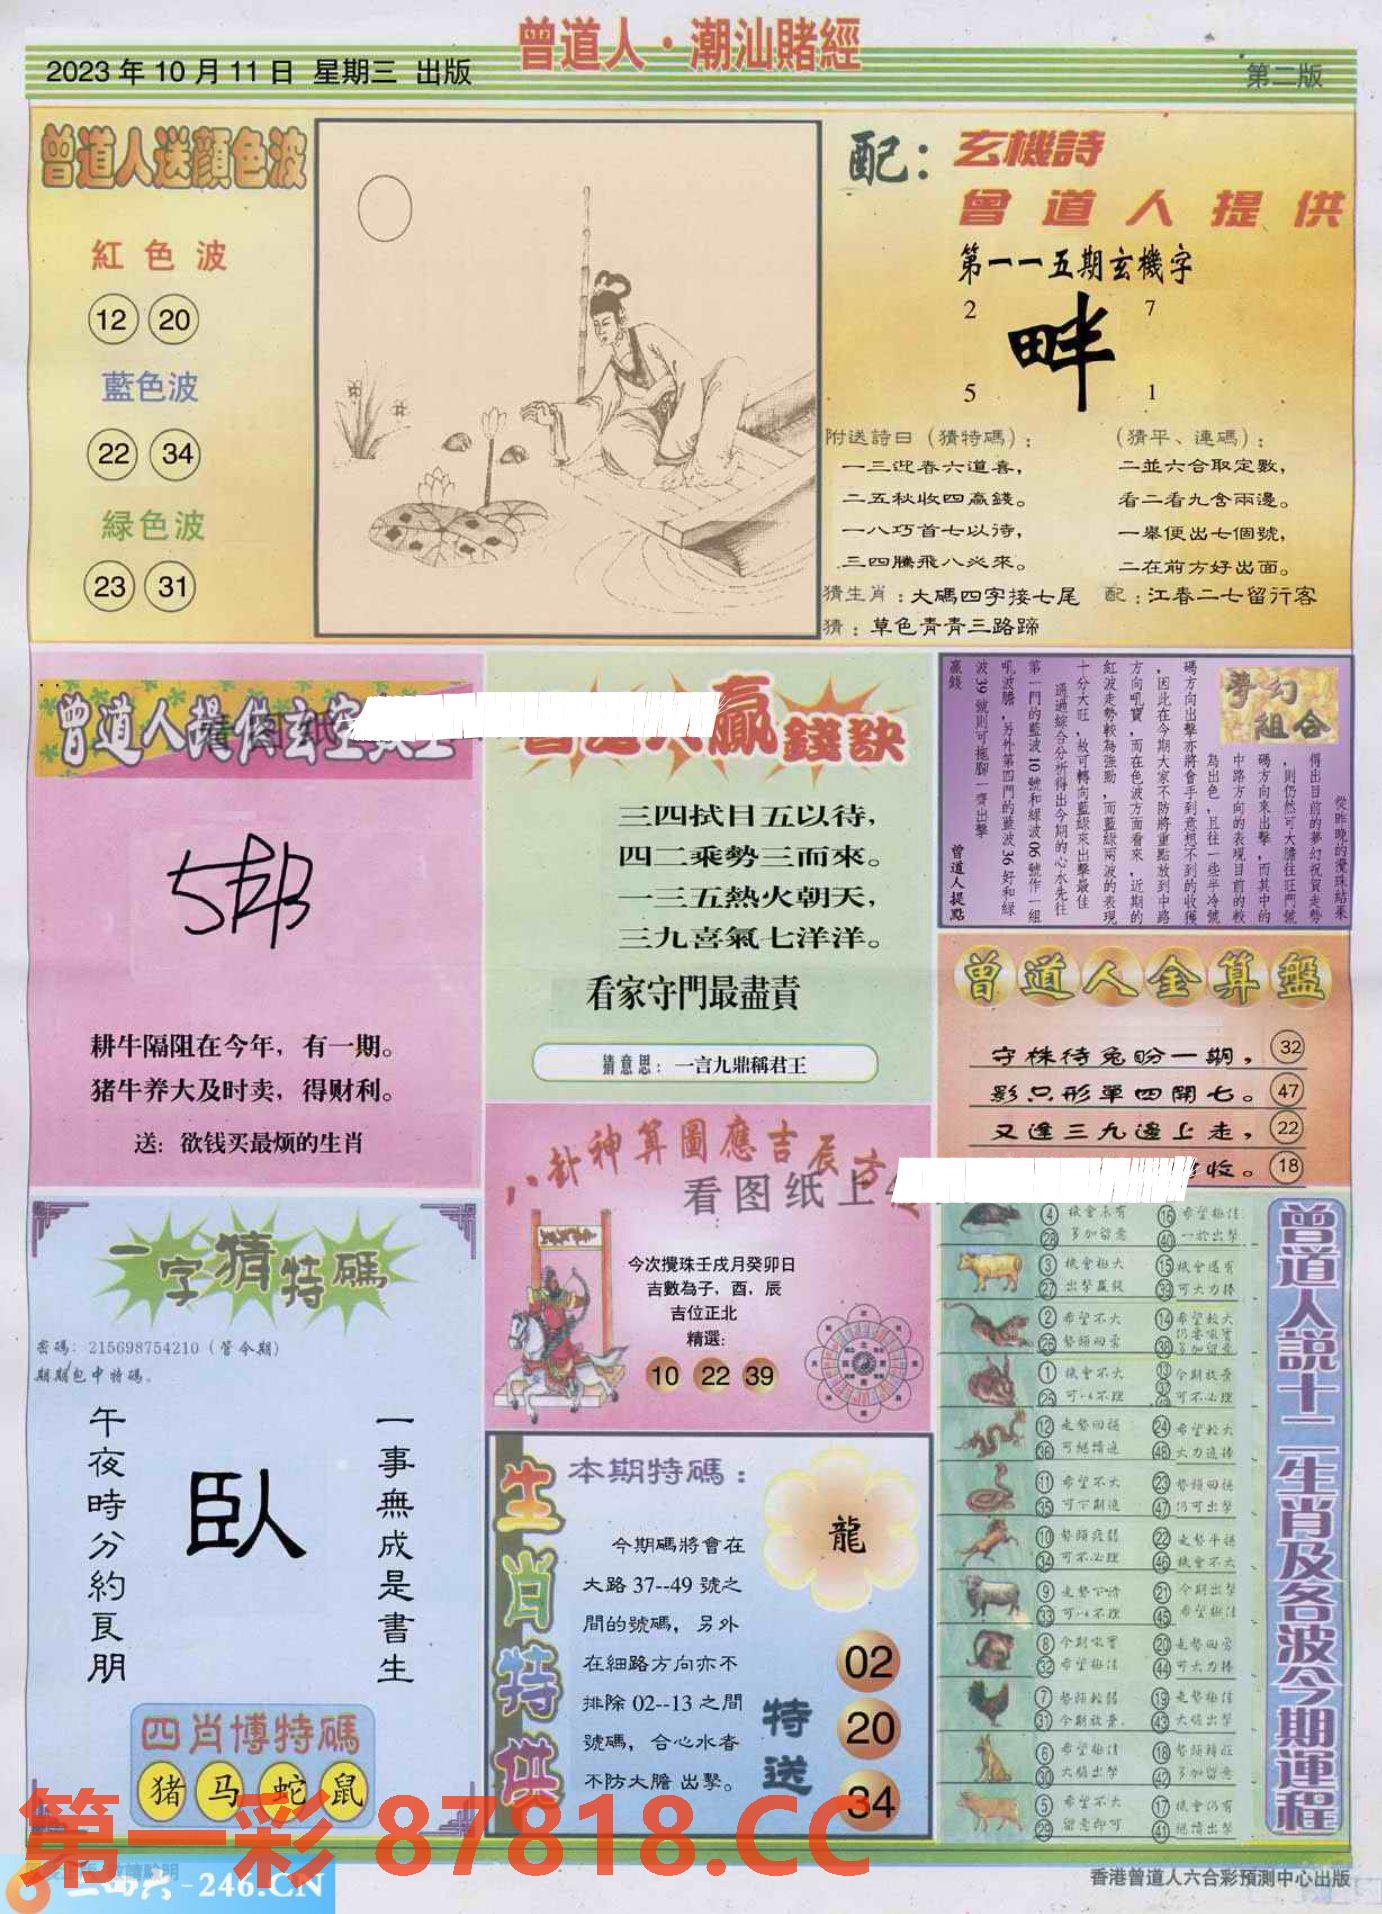 曾道人·潮汕賭經
2023年10月11日 星期三 出版
第二版
曾道人送顏色波
紅色波
12 20
藍色波
22 34
緑色波
23 31
配：玄機詩
曾道人提供
第一一五期玄機字
2 7
畔
5 1
附送詩日（猜特碼）：
一三迎春六道喜，
二五秋收四贏錢。
一八巧首七以待，
三四騰飛八必來。
（猜平、連碼）：
二並六合取定數，
看二看九含兩邊。
一舉便出七個號，
二在前方好出面。
猜生肖：大碼四字接七尾 配：江春二七留行客
猜：草色青青三路蹄
曾道人提供玄空
耕牛隔阻在今年，有一期。
猪牛养大及时卖，得财利。
送：欲钱买最烦的生肖
贏錢訣
三四拭目五以待，
四二乘勢三而來。
一三五熱火朝天，
三九喜氣七洋洋。
看家守門最盡責
猜意思：一言九鼎稱君王
夢幻組合
從昨晚的攪珠結果
得出目前的夢幻祝賀走勢
，則仍然可大膽往旺門號
碼方向來出擊，而其中的
中路方向的表現目前的較
為出色，且往一些半冷號
碼方向出擊亦將會手到意想不到的收獲
，因此在今期大家不防將重點放到中路
方向吼寶，而在色波方面看來，近期的
紅波走勢較為強勁，而藍綠兩波的表現
十分大旺，故可轉向藍綠來出擊最佳
通過綜合分析得出今期的心水先往
第一門的藍波10號和綠波06號作一組
吼波膽，另外第四門的藍波36好和綠
波39號則可拖腳一齊出擊
贏錢
曾道人提點
曾道人金算盤
守株待兔盼一期， 32
影只形單四開七。 47
又逢三九邊上走， 22
收。 18
八卦神算圖應吉辰方
看图纸上
今次攪珠壬戌月癸卯日
吉數為子，酉，辰
吉位正北
精選：
10 22 39
一字猜特碼
密碼：215698754210（管今期）
期期包中特碼。
一事無成是書生
臥
午夜時分約良朋
四肖博特碼
猪 马 蛇 鼠
生肖特供
本期特碼：
龍
今期碼將會在
大路37--49號之
間的號碼，另外
在細路方向亦不
排除02--13之間
號碼，合心水者
不防大膽出擊。
特送
02
20
34
曾道人説十二生肖及各波今期運程
4 機會未有 16 希望極佳
28 多加留意 40 一於出擊
3 機會極大 15 機會還有
27 出擊贏錢 39 可大力捧
2 希望不大 14 希望較大
26 勢頭回落 38
1 機會不大 13 今期放棄
25 可以不理 37 可不必理
12 走勢回穩 24 希望較大
36 可繼續追 48 大力追捧
11 希望不大 23 勢頭回穩
35 可下期追 47 仍可出擊
10 勢頭疲弱 22 走勢平穩
34 可不必理 46 機會不大
9 走勢下滑 21 今期出擊
33 可以不理 45 希望極佳
8 今期吼實 20 走勢回落
32 希望極佳 44 可大力捧
7 勢頭較弱 19 走勢極佳
31 今期放棄 43 大膽出擊
6 希望極佳 18 勢頭轉旺
30 大膽出擊 42 多加留意
5 希望不大 17 機會仍有
29 留意即可 41 繼續出擊
第一彩 87818.CC
二四六-246.CN
香港曾道人六合彩預測中心出版